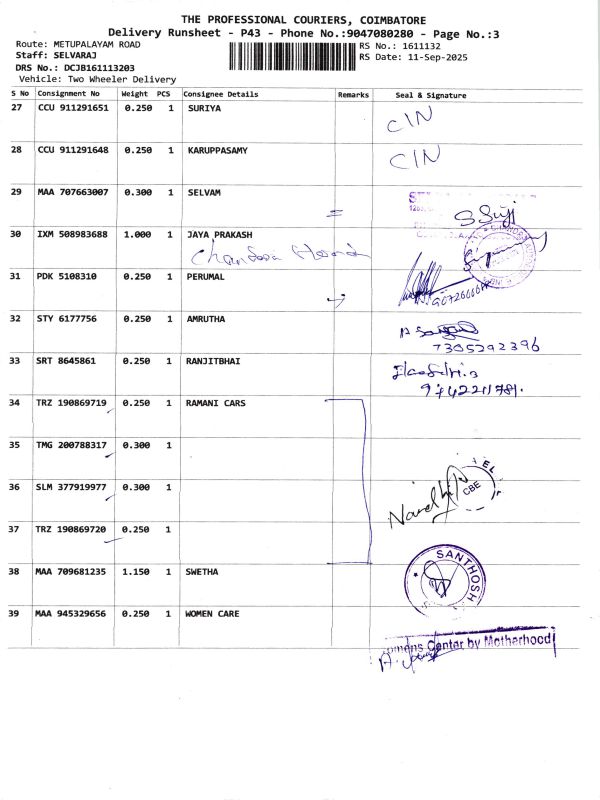 THE PROFESSIONAL COURIERS, COIMBATORE
Delivery Runsheet - P43 - Phone No.:9047080280 - Page No.:3
Route: METUPALAYAM ROAD RS No.: 1611132
Staff: SELVARAJ RS Date: 11-Sep-2025
DRS No.: DCJB161113203
Vehicle: Two Wheeler Delivery
S No Consignment No Weight PCS Consignee Details Remarks Seal & Signature
27 CCU 911291651 0.250 1 SURIYA CIN
28 CCU 911291648 0.250 1 KARUPPASAMY CIN
29 MAA 707663007 0.300 1 SELVAM
S Suji
30 IXM 508983688 1.000 1 JAYA PRAKASH
31 PDK 5108310 0.250 1 PERUMAL
32 STY 6177756 0.250 1 AMRUTHA
7305292396
33 SRT 8645861 0.250 1 RANJITBHAI
9742211781.
34 TRZ 190869719 0.250 1 RAMANI CARS
35 TMG 200788317 0.300 1
36 SLM 377919977 0.300 1
CBE
37 TRZ 190869720 0.250 1
38 MAA 709681235 1.150 1 SWETHA
SANTHOSH
39 MAA 945329656 0.250 1 WOMEN CARE
Center by Motherhood